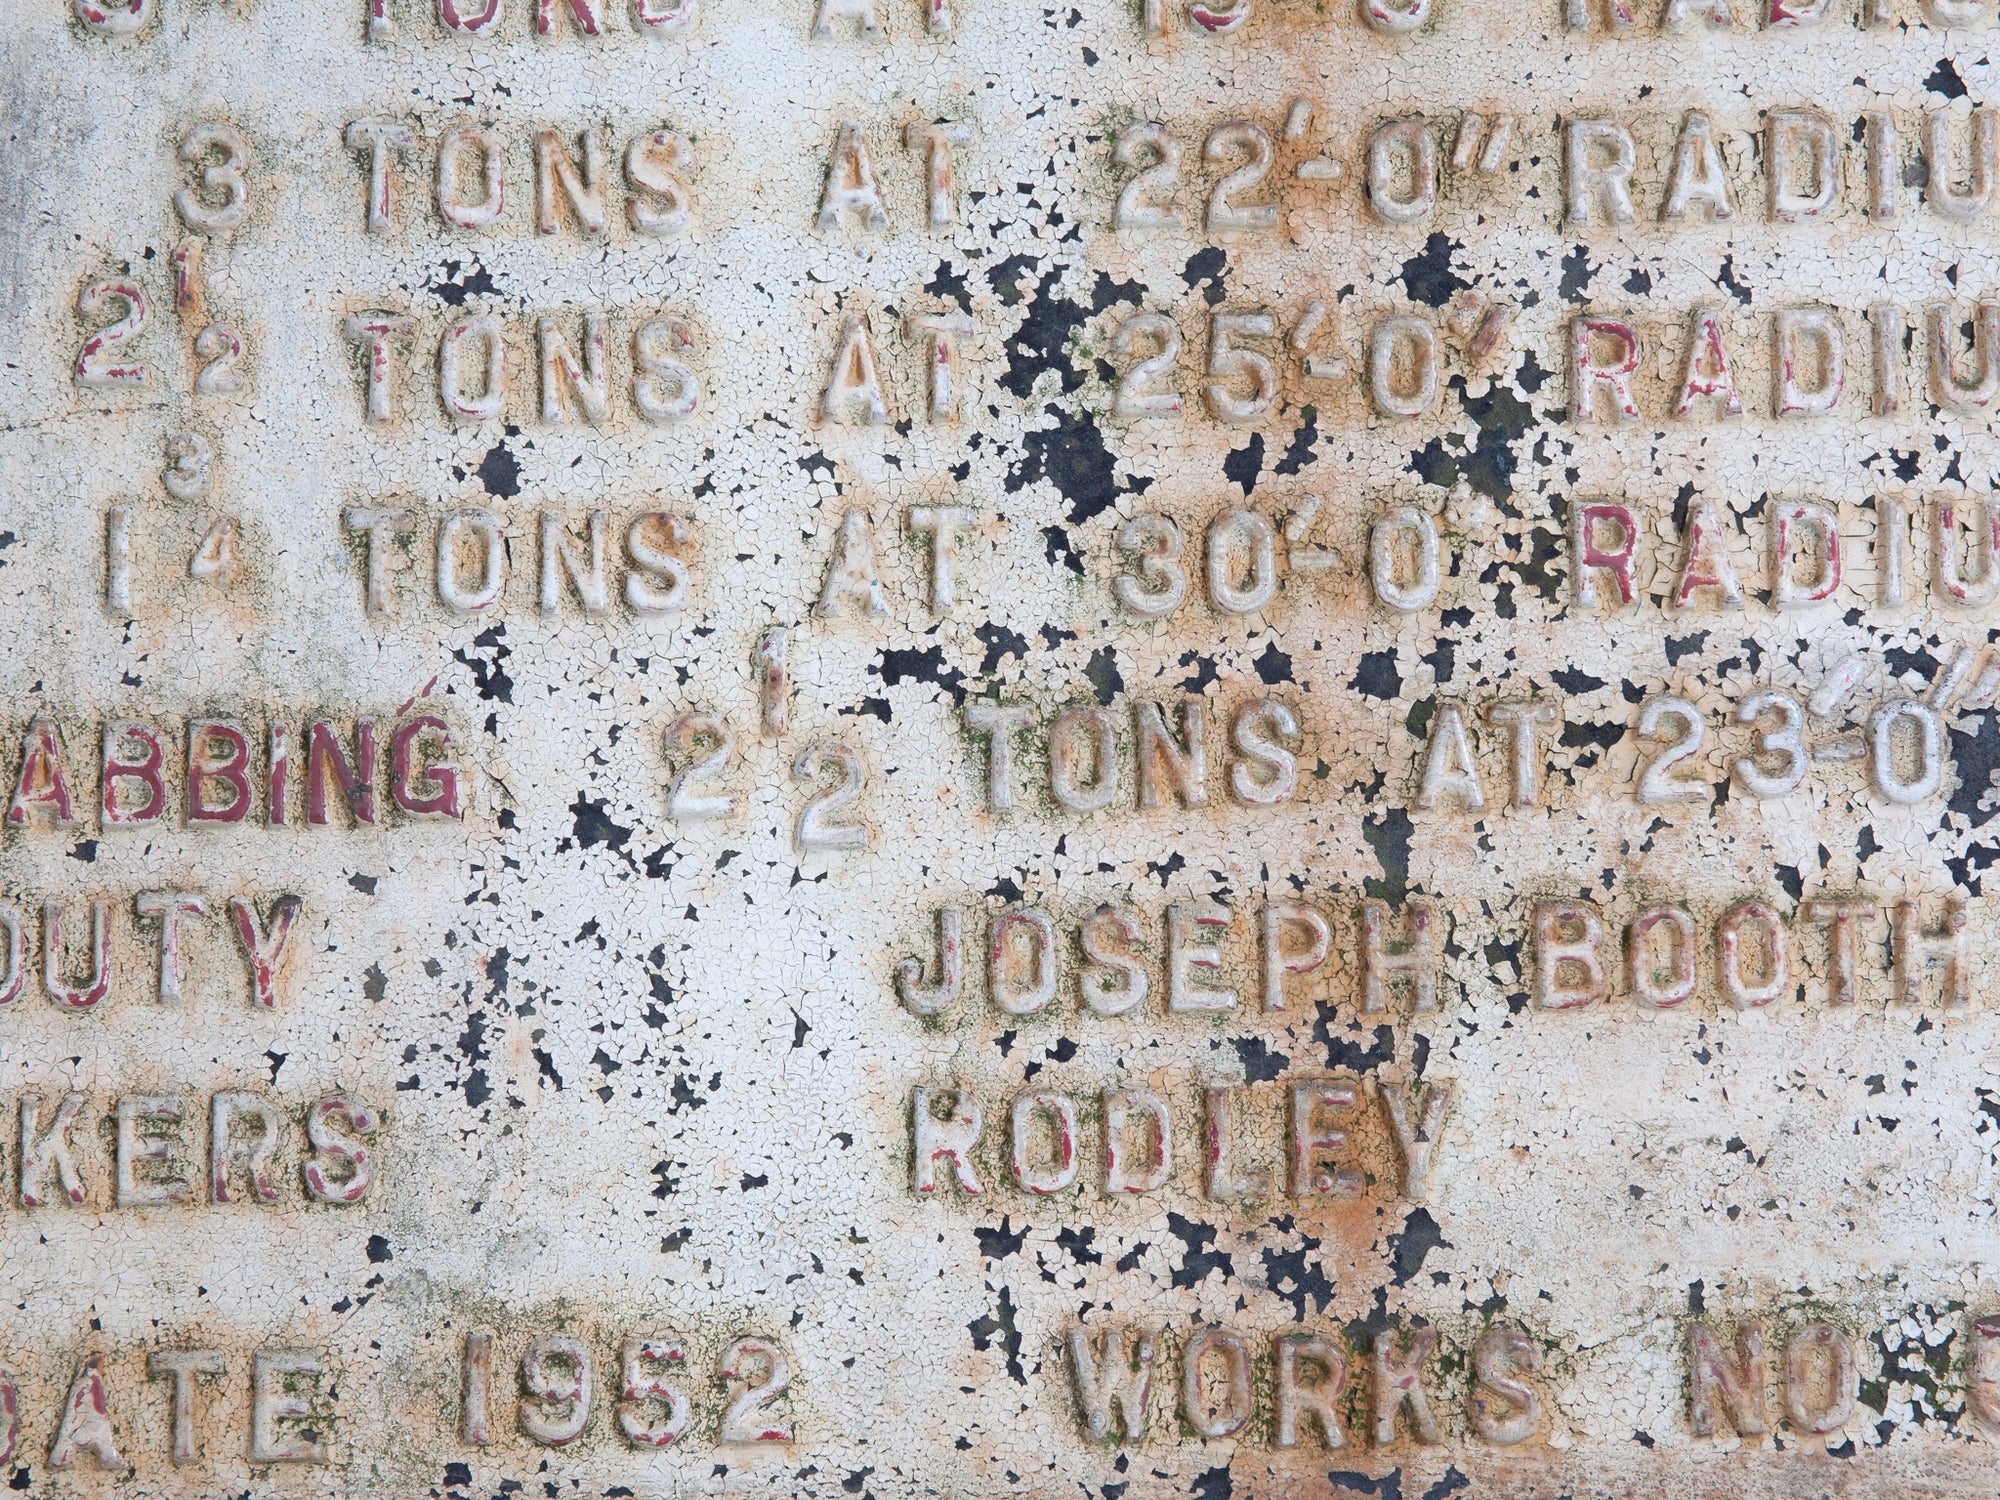 TONS AT 15'-0" RADIU
3 TONS AT 22'-0" RADIU
2 1/2 TONS AT 25'-0" RADIU
1 3/4 TONS AT 30'-0" RADIU
ABBING 2 1/2 TONS AT 23'-0"
DUTY JOSEPH BOOTH
KERS RODLEY
DATE 1952 WORKS NO